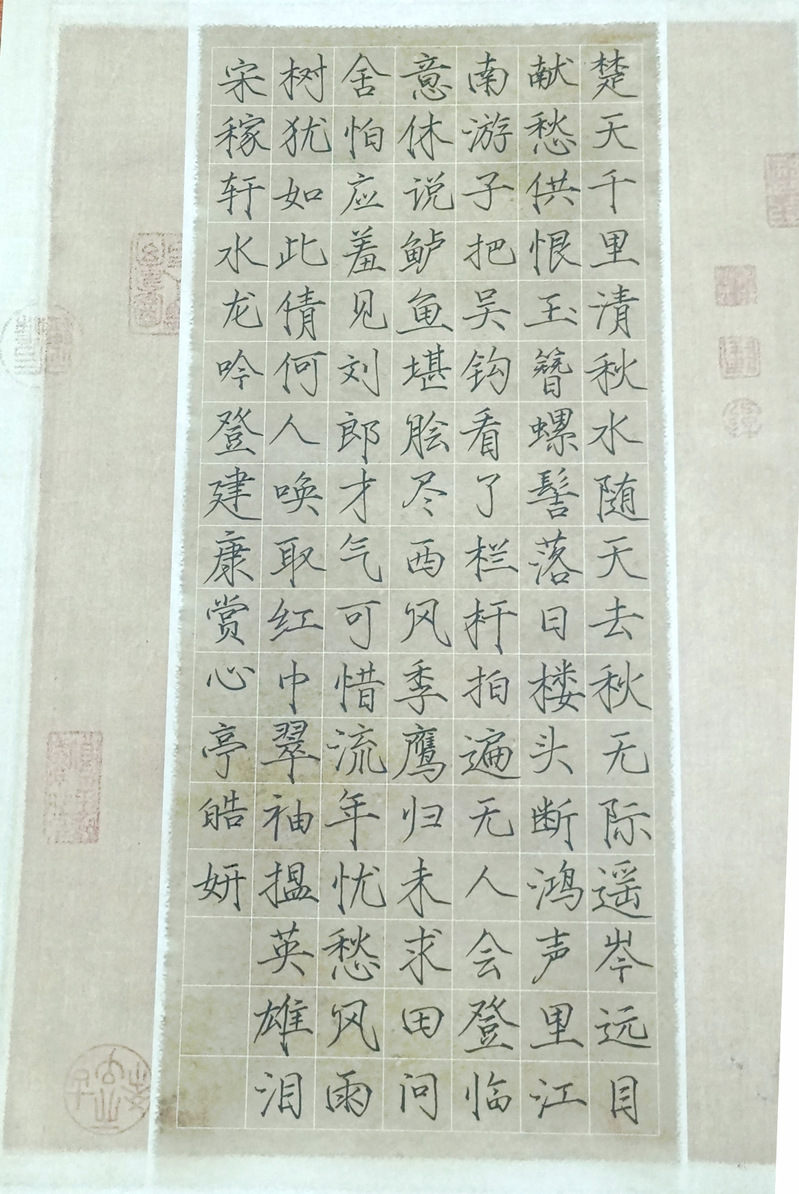 楚天千里清秋水随天去秋无际遥岑远目
献愁供恨玉簪螺髻落日楼头断鸿声里江
南游子把吴钩看了栏杆拍遍无人会登临
意休说鲈鱼堪脍尽西风季鹰归未求田问
舍怕应羞见刘郎才气可惜流年忧愁风雨
树犹如此倩何人唤取红巾翠袖揾英雄泪
宋稼轩水龙吟登建康赏心亭皓妍